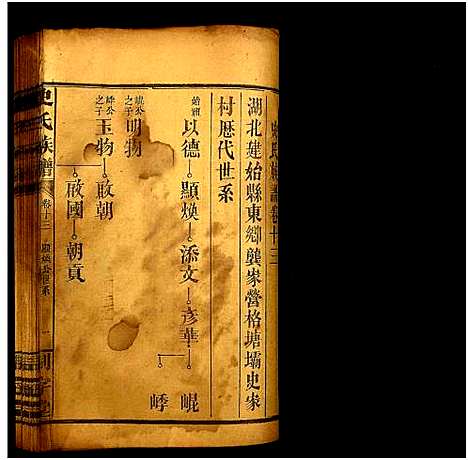 史氏族譜卷十三
湖北建始縣東鄉龔家營格塘壩史家
村歷代世系
始祖 以德 顯煥 添文 彥華 崐
嵊
崐公之子 明物
嵊公之子 玉物 啟朝
啟國 朝貢
史氏族譜 卷十三 顯煥公世系 一